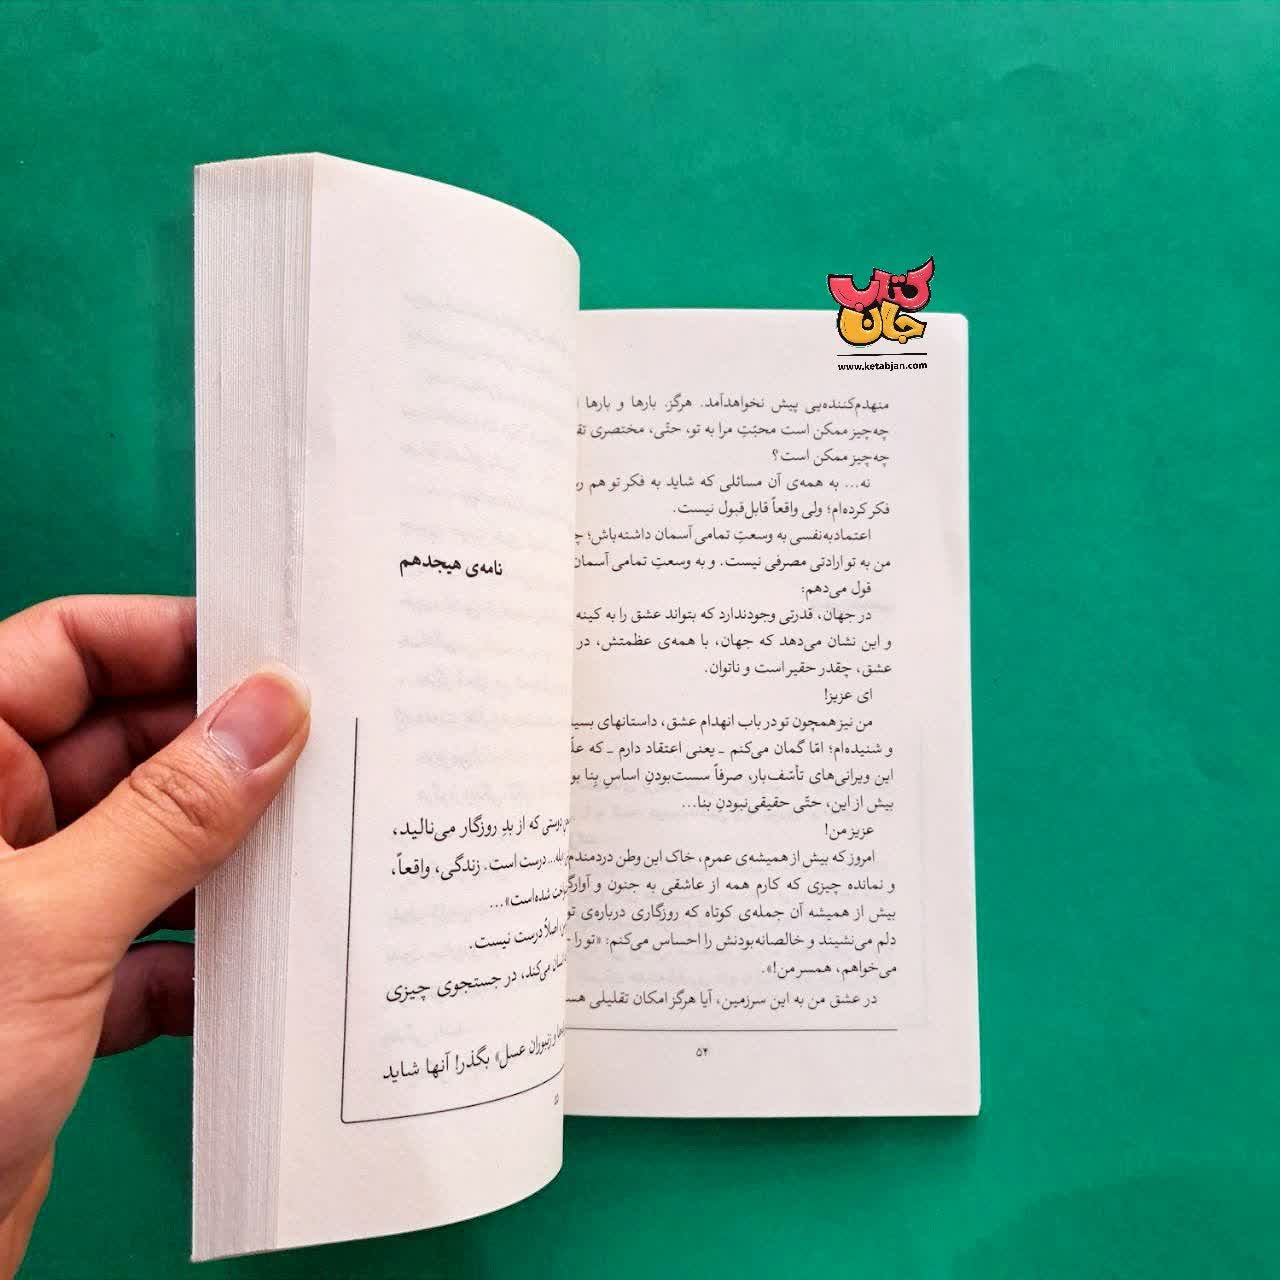 کتاب
جان
www.ketabjan.com
منهدم‌کننده‌یی پیش نخواهدآمد. هرگز. بارها و بارها
چه‌چیز ممکن است محبّتِ مرا به تو، حتّی، مختصری
چه‌چیز ممکن است؟
نه... به همه‌ی آن مسائلی که شاید به فکر تو هم
فکر کرده‌ام؛ ولی واقعاً قابل‌قبول نیست.
اعتمادبه‌نفسی به وسعتِ تمامی آسمان داشته‌باش؛
من به تو ارادتی مصرفی نیست. و به وسعتِ تمامی آسمان
قول می‌دهم:
در جهان، قدرتی وجودندارد که بتواند عشق را به کینه
و این نشان می‌دهد که جهان، با همه‌ی عظمتش، در
عشق، چقدر حقیر است و ناتوان.
ای عزیز!
من نیز همچون تو در باب انهدام عشق، داستانهای
و شنیده‌ام؛ امّا گمان می‌کنم ـ یعنی اعتقاد دارم ـ که
این ویرانی‌های تأسّف‌بار، صرفاً سست‌بودنِ اساسِ بِنا
بیش از این، حتّی حقیقی‌نبودنِ بنا...
عزیز من!
امروز که بیش از همیشه‌ی عمرم، خاک این وطن دردمندم
و نمانده چیزی که کارم همه از عاشقی به جنون و
بیش از همیشه آن جمله‌ی کوتاه که روزگاری درباره‌ی
دلم می‌نشیند و خالصانه‌بودنش را احساس می‌کنم: «تو را
می‌خواهم، همسر من!».
در عشق من به این سرزمین، آیا هرگز امکان تقلیلی
۵۴
نامه‌ی هیجدهم
دوستی که از بدِ روزگار می‌نالید،
درست است. زندگی، واقعاً،
شده‌است»...
اصلاً درست نیست.
می‌کند، در جستجوی چیزی
و زنبوران عسل» بگذر! آنها شاید